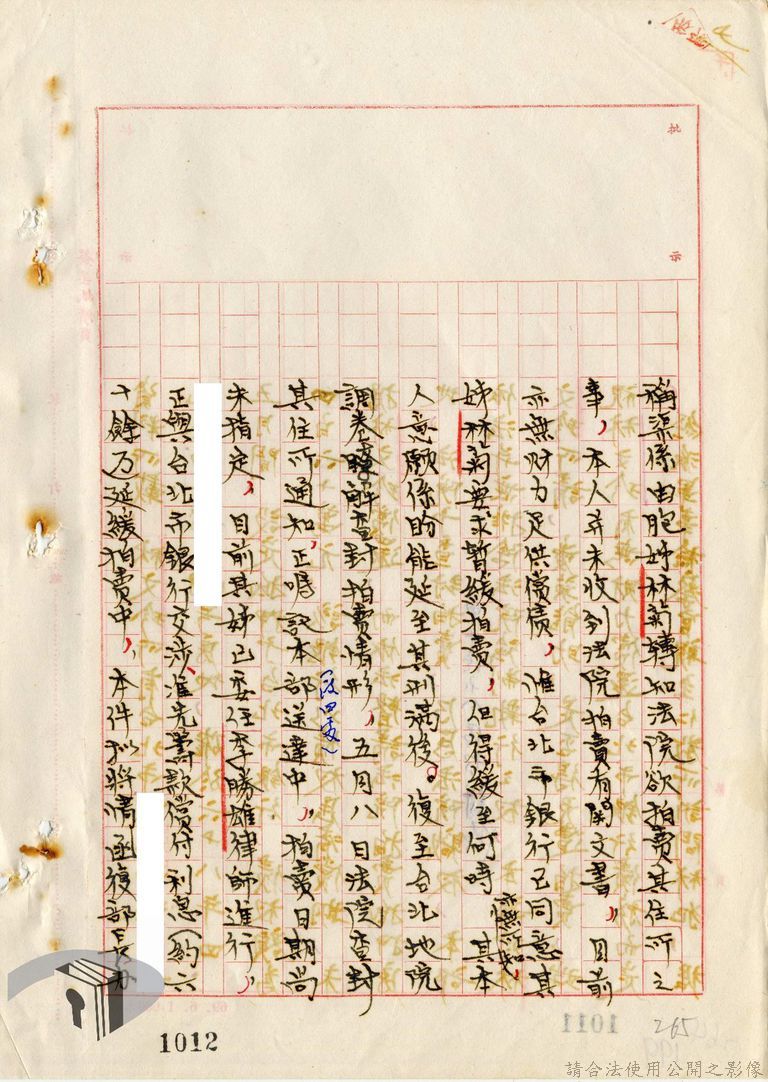 批示
稱渠係由胞姊林菊轉知法院欲拍賣其住所之
事,本人並未收到法院拍賣有關文書。目前
亦無財力足供償債,惟台北市銀行已同意其
姊林菊要求暫緩拍賣,但得緩至何時亦無所知,其本
人意願係盼能延至其刑滿後。復至台北地院
調卷瞭解查封拍賣情形,五月八日法院查封
其住所通知,正囑託本部(役四表)送達中。拍賣日期尚
未指定,目前其姊已委任李勝雄律師進行,
正與台北市銀行交涉、准先籌款償付利息(約六
十餘万延緩拍賣中,本件拟將情函復部長办
1012
1011
265
請合法使用公開之影像